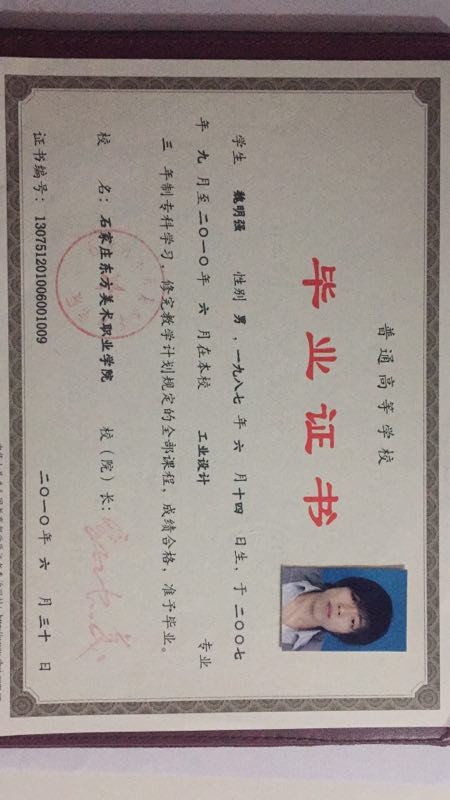 普通高等学校
毕业证书
学生 魏明强 性别 男，一九八七 年 六 月 十四 日生，于 二〇〇七
年 九 月至 二〇一〇 年 六 月在本校 工业设计 专业
三 年制专科学习，修完教学计划规定的全部课程，成绩合格，准予毕业。
校 名：石家庄东方美术职业学院 校（院）长：
证书编号：130751201006001009 二〇一〇 年 六 月 三十 日